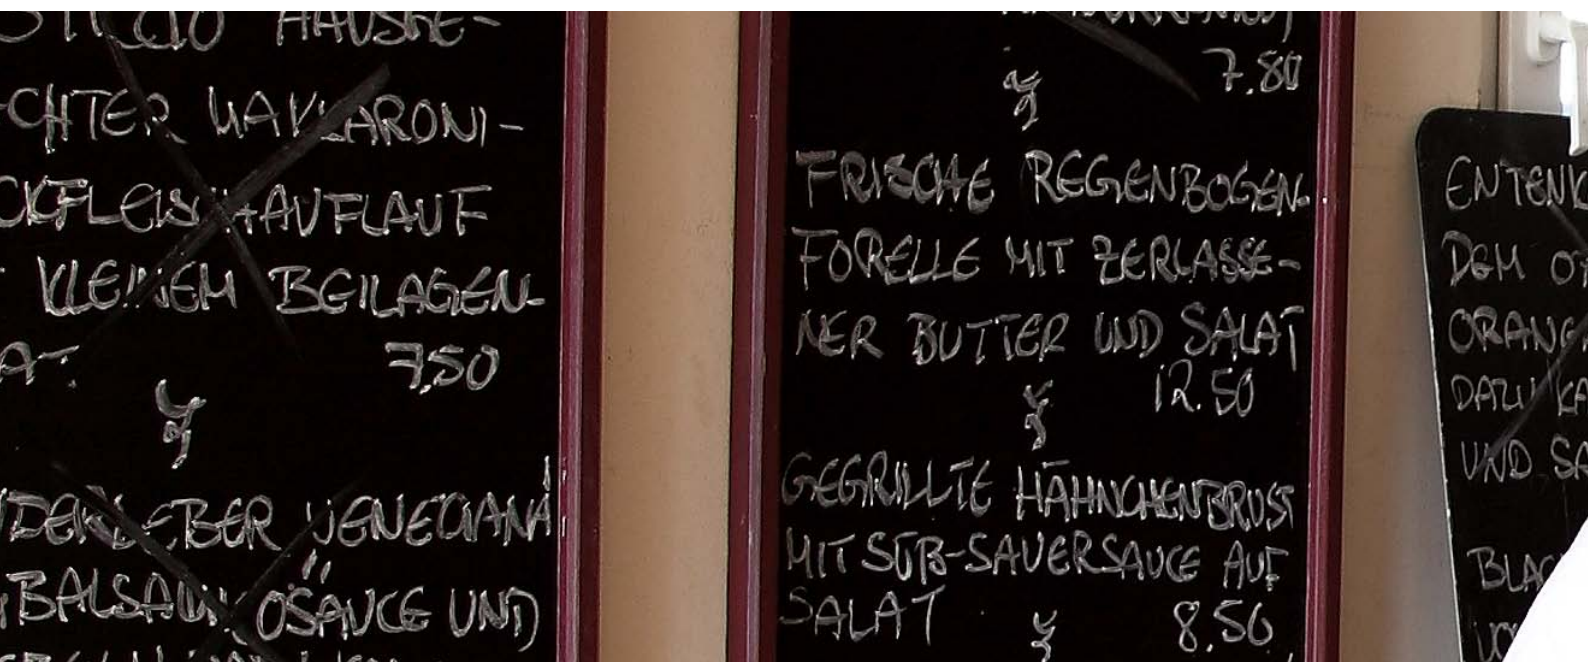 HAUSGE-
CHTER MAKKARONI-
CKFLEISCHAUFLAUF
KLEINEM BEILAGEN-
AT. 7,50
DERLEBER VENEZIANA
BALSAMICOSAUCE UND
7.80
FRISCHE REGENBOGEN-
FORELLE MIT ZERLASSE-
NER BUTTER UND SALAT
12.50
GEGRILLTE HÄHNCHENBRUST
MIT SÜß-SAUERSAUCE AUF
SALAT 8.50
ENTENK
DEM
ORANG
DAZU KA
UND SA
BLAC